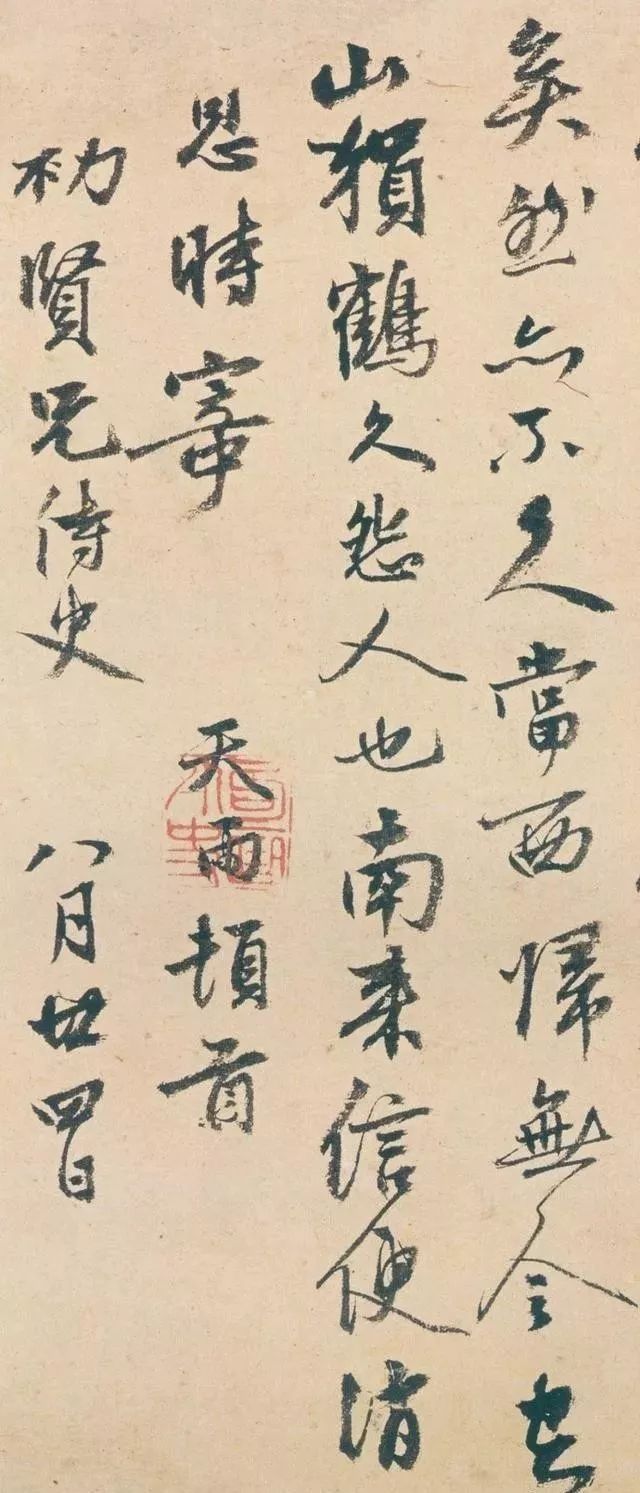 矣然亦不久當西歸無令
山猿鶴久怨人也南來信便消
息時寄 天雨頓首
賢兄侍史 八月廿四日